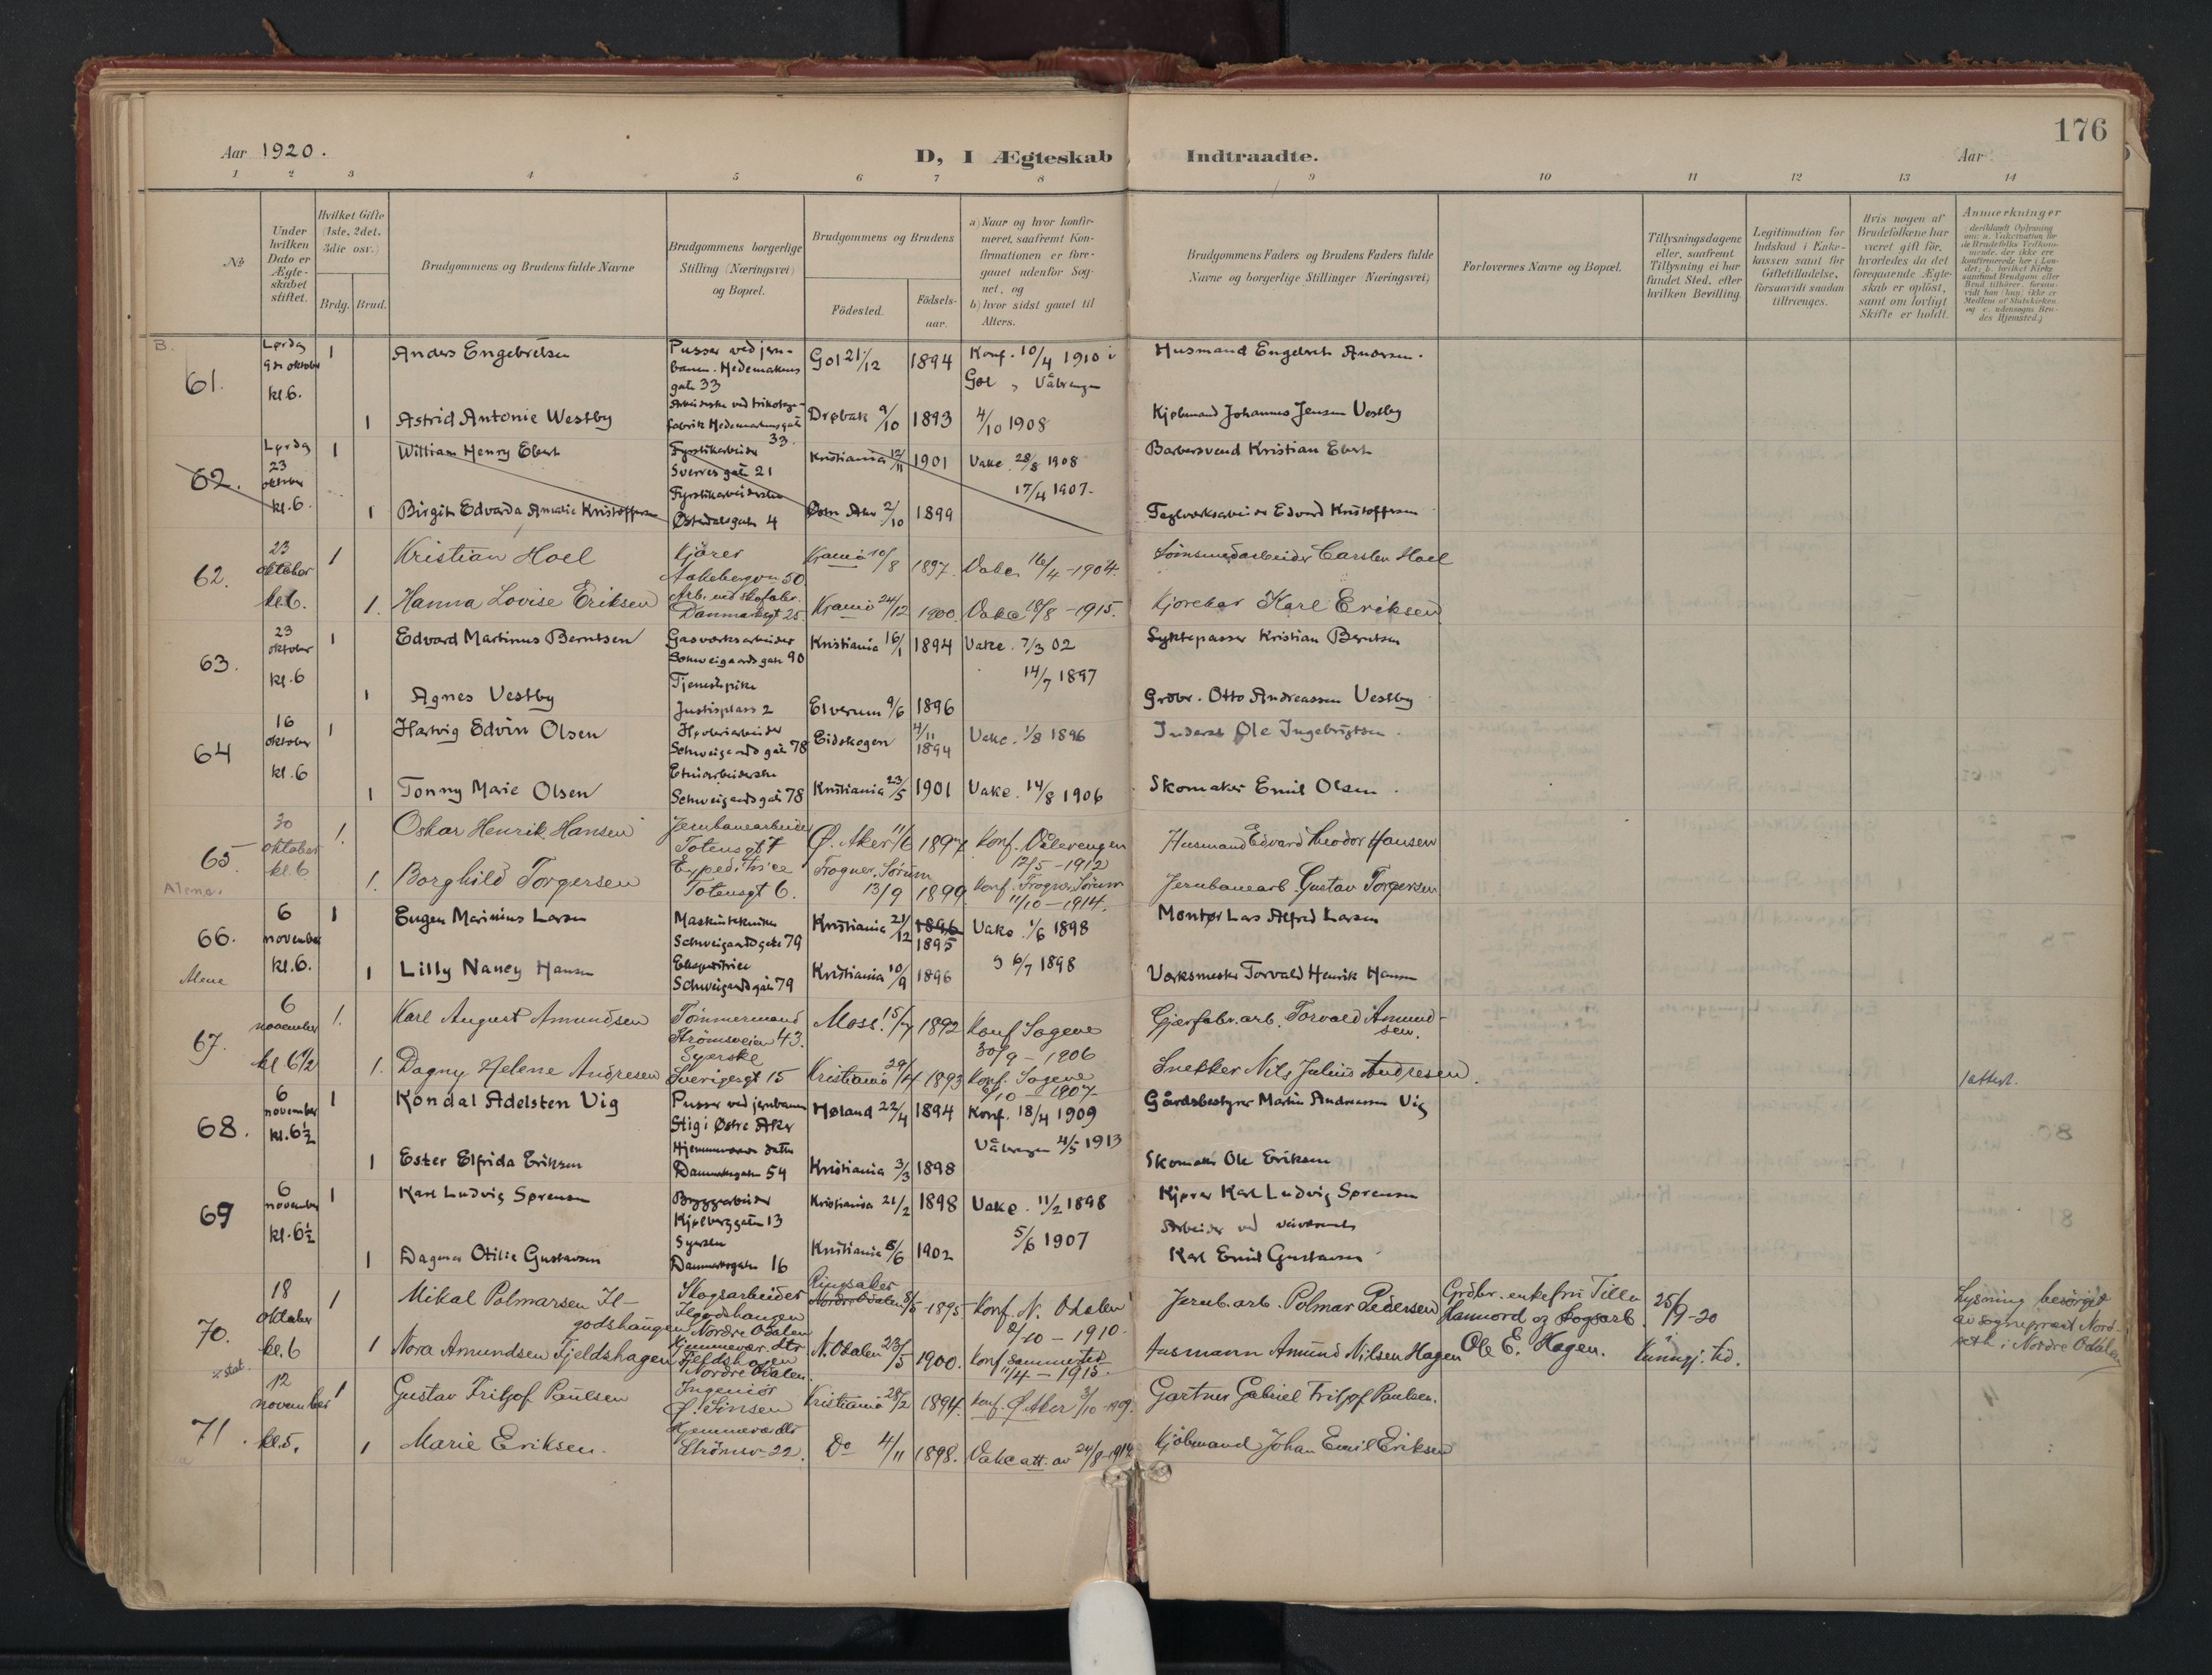 176
Aar 1920.
D, I Ægteskab Indtraadte.
Aar
1 2 3 4 5 6 7 8 9 10 11 12 13 14
№
Under hvilken Dato er Ægteskabet stiftet.
Hvilket Gifte (1ste, 2det, 3die osv.)
Brdg. Brud.
Brudgommens og Brudens fulde Navne
Brudgommens borgerlige Stilling (Næringsvei) og Bopæl.
Brudgommens og Brudens
Födested.
Födsels-aar.
a) Naar og hvor konfirmeret, saafremt Konfirmationen er foregaaet udenfor Sognet, og
b) hvor sidst gaaet til Alters.
Brudgommens Faders og Brudens Faders fulde Navne og borgerlige Stillinger (Næringsvei)
Forlovernes Navne og Bopæl.
Tillysningsdagene eller, saafremt Tillysning ei har fundet Sted, efter hvilken Bevilling.
Legitimation for Indskud i Enkekassen samt for Giftetilladelse, forsaavidt saadan tiltrænges.
Hvis nogen af Brudefolkene har været gift för, hvorledes da det foregaaende Ægteskab er oplöst, samt om lovligt Skifte er holdt.
Anmerkninger
B.
61. Lørdag 9de oktober kl. 6.
1 Anders Engebretsen
Pusser ved jernbanen. Hedemarkens gate 33
Gol 21/12 1894
Konf. 10/4 1910 i Gol, Vålrengen
Husmand Engebret Andersen.
1 Astrid Antonie Westby
Arbeiderske ved trikotagefabrik Hedemarkens gate 33
Drøbak 9/10 1893
4/10 1908
Kjøbmand Johannes Jensen Vestby
62. Lørdag 23 oktober kl. 6.
1 William Henry Ebert
Fyrstikarbeider Sverres gate 21
Kristiania 12/11 1901
Vakc. 28/8 1908
Barbersvend Kristian Ebert
1 Birgit Edvarda Amalie Kristoffersen
Fyrstikarbeiderske Østerdalsgaten 4
Østre Aker 2/10 1899
17/4 1907.
Teglverksarbeider Edvard Kristoffersen
62. 23 oktober kl. 6.
1 Kristian Hoel
Kjörer Aakebergvn 50.
Kr.ania 10/8 1897.
Vakc. 16/4 - 1904.
Sömsmedarbeider Carsten Hoel
1. Hanna Lovise Eriksen
Arb. ved skofabr. Danmarksgt 25.
Kr.ania 24/12 1900.
Vakc 18/8 - 1915.
Kjørekar Karl Eriksen
63. 23 oktober kl. 6
1 Edvard Martinus Berntsen
Gasverksarbeider Schweigaards gate 90
Kristiania 16/1 1894
Vakc. 7/3 02
Sykepasser Kristian Berntsen
1 Agnes Vestby
Tjenestepike Justisplass 2
Elverum 9/6 1896
14/7 1897
Grdbr. Otto Andreassen Vestby
64 16 oktober kl. 6
1 Hartvig Edvin Olsen
Høvleriarbeider Schweigaards gate 78
Eidskogen 4/11 1894
Vakc. 1/8 1896
Inderst Ole Ingebrigtsen
1 Tonny Marie Olsen
Etuiarbeiderske Schweigaards gate 78
Kristiania 23/5 1901
Vakc. 14/8 1906
Skomaker Emil Olsen.
65 30 oktober kl. 6
1. Oskar Henrik Hansen
Jernbanearbeider Totensgt 7
Ø. Aker 11/6 1897
Konf. Vålerengen 12/5 - 1912
Husmand Edvard Theodor Hansen
1. Borghild Torgersen
Expeditrice Totensgt 6.
Frogner, Sørum 13/9 1899.
Konf. Frogner, Sørum 11/10 - 1914.
Jernbanearb. Gustav Torgersen
66. 6 november kl. 6.
1 Eugen Marinius Larsen
Maskintekniker Schweigaards gate 79
Kristiania 21/12 1896 1895
Vakc. 1/6 1898
Montør Lars Alfred Larsen
1 Lilly Nancy Hansen
Ekspeditrice Schweigaards gate 79
Kristiania 10/9 1896
6/7 1898
Verksmester Torvald Henrik Hansen
67. 6 november kl 6 1/2
1. Karl August Amundsen
Tömmermand Strömsveien 43.
Moss. 15/7 1892
Konf Sagene 30/9 - 1906
Gjærfabr.arb. Torvald Amundsen.
1. Dagny Helene Andresen
Syerske Sverigesgt 15
Kristiania 29/4 1893
Konf. Sagene 6/10 - 1907
Snekker Nils Julius Andresen.
1 attest.
68. 6 november kl. 6 1/2
1 Kondal Adelsten Vig
Pusser ved jernbanen Stig i Østre Aker
Høland 22/4 1894
Konf. 18/4 1909
Gårdsbestyrer Martin Andreassen Vig
1 Ester Elfrida Eriksen
Hjemmeværende datter Danmarksgaten 54
Kristiania 3/3 1898
Vålrengen 4/5 1913
Skomaker Ole Eriksen
69 6 november kl. 6 1/2
1 Karl Ludvig Sørensen
Bryggearbeider Kjølberggaten 13
Kristiania 21/2 1898
Vakc. 11/2 1898
Kjører Karl Ludvig Sørensen
1 Dagmar Otilie Gustavsen
Syerske Danmarksgaten 16
Kristiania 5/6 1902
5/6 1907
Arbeider ved veivæsenet Karl Emil Gustavsen
70. 18 oktober kl. 6
1 Mikal Polmarsen Ilgodshaugen
Skogsarbeider Ilgodshaugen Nordre Odalen
Ringsaker Nordre Odalen 8/5 - 1895
Konf. N. Odalen 2/10 - 1910.
Jernb.arb. Polmar Pedersen
Grdbr. enkefru Tilla Hannord og skogsarb. Ole E. Hagen.
25/9 - 20
Kunngj. tid.
Lysning besörget av sogneprest Nordseth i Nordre Odalen
1 Nora Amundsen Fjeldshagen
Hjemmevær. dtr Fjeldshagen Nordre Odalen.
N. Odalen 23/5 1900.
Konf sammested 11/4 - 1915.
Husmann Amund Nilsen Hagen
71. 12 november kl. 5.
1 Gustav Fritjof Paulsen
Ingeniör Ø. Sinsen
Kristiania 28/2 1894.
Konf. Ø Aker 3/10 - 1909.
Gartner Gabriel Fritjof Paulsen.
1 Marie Eriksen.
Hjemmevær dtr Strömsv. 22.
Do 4/11 1898.
Vakc att. av 24/8 - 1914
Kjöbmand Johan Emil Eriksen